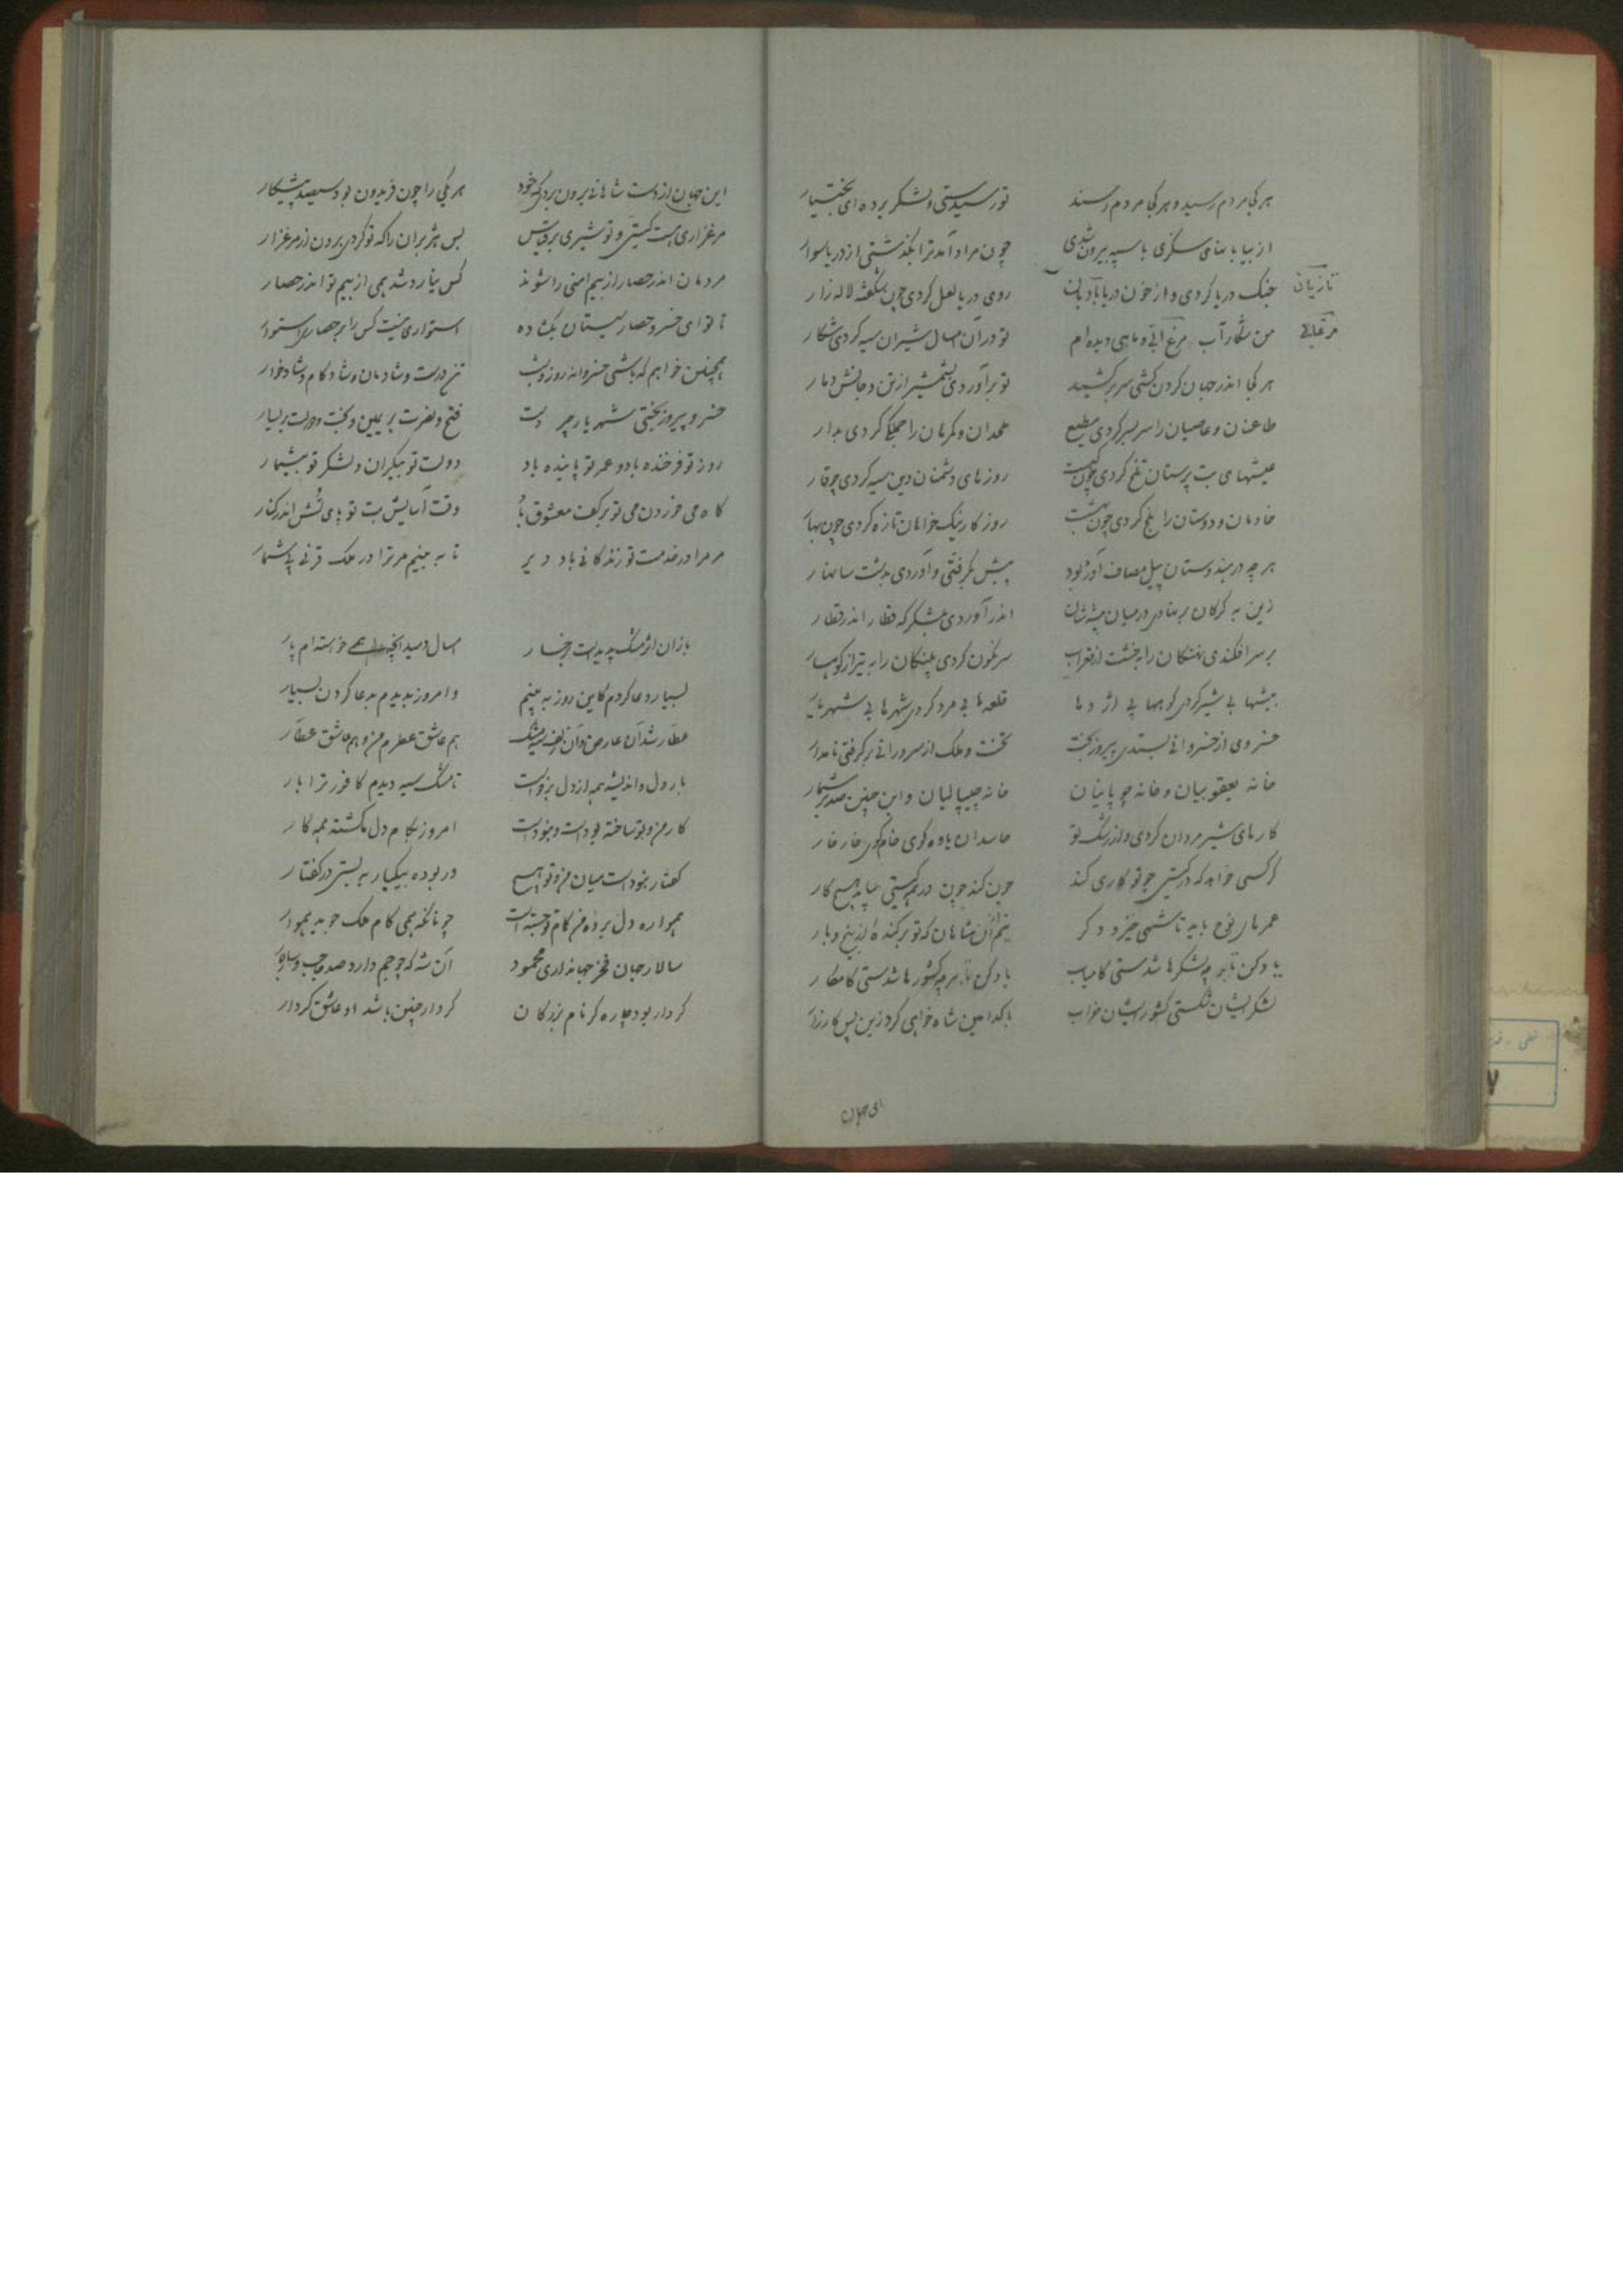 هر کجا مردم رسید و هر کجا مردم رسند تو رسیدستی و لشکر برده‌ای بختیار
از بیابانهای سگزی با سپه بیرون شدی چون مراد آمد ترا بگذشتی از دریا سوار
تازیان
جنگ دریا کردی و از خون دریا روی دریا لعل کردی چون شکفته لاله زار
مرغابی
من شکار آب مرغابی و ماهی دیده‌ام تو در آن امسال شیران سیه کردی شکار
هر کجا اندر جهان گردن کشی سر برکشید تو برآوردی بشمشیر از تن و جانش دمار
طاغیان و عاصیان را سربسر کردی مطیع ملحدان و گمرهان را جملگی کردی بدار
عیشهای بت پرستان تلخ کردی چون کبست روزهای دشمنان دین سیه کردی چو قار
خادمان و دوستان را چون بهشت روزگار نیک خواهان تازه کردی چون بهار
هر چه در هندوستان پیل مصاف آور بود پیش بگرفتی و آوردی بدشت سابهار
زین به گرگان برنهادی در میان بیشه‌شان اندر آوردی بلشکرگه قطار اندر قطار
بر سر افکندی نهنگان را بخشت از قعر آب سرنگون کردی پلنگان را به تیر از کوهسار
بیشها بی شیر کردی کوهها بی اژدها قلعه‌ها بی مرد کردی شهرها بی شهریار
خسروی از خسروانی بستدی پیروزبخت تخت و ملک از سرورانی برگرفتی نامدار
خانه یعقوبیان و خانه چیپالیان و این چنین صد بر شمار
کارهای شیر مردان کردی و از رشک تو حاسدان یاوه گوی خام گوی خار خار
هر کسی خواهد که در گیتی چو تو کاری کند چون کند چون در همه گیتی نیابد هیچ کار
عمرهای نوح باید تا شهی خیزد دگر آن شاهان که تو برکندهٔ از بیخ و بار
یاد کن تا بر چه لشکرها شدستی کامیاب یاد کن تا بر چه کشورها شدستی کامکار
لشکر ایشان شکستی کشور ایشان خراب با کدامین شاه خواهی کرد زین پس کارزار
ای جهان
این جهان از دست شاهانی برون بردی که خود هر یکی را چون فریدون بود سیصد پیشکار
مرغزاری است گیتی و تو شیری بر قیاس بس هژبران را که تو کردی برون زمرغزار
مردمان اندر حصار از بیم امنی را شوند کس نیارد شد همی از بیم تو اندر حصار
تا تو ای خسرو حصار سیستان بگشاده استواری نیست کس را بر حصار استوار
همچنین خواهم که باشی خسروانه روز و شب تن درست و شادمان و شادکام و شادخوار
خسرو پیروزبختی شهریار چیره دست فتح و نصرت بر یمین و بخت و دولت بر یسار
روز تو فرخنده باد و عمر تو پاینده باد دولت تو بیکران و لشکر تو بیشمار
گاه می خوردن می تو بر کف معشوق باد وقت آسایش بت تو پای تش اندر کنار
مر مرا در خدمت تو زندگانی باد دیر تا به بینم مر ترا در ملک قرنی بی‌شمار
یاران اثر مشک پدید است برخسار امسال دمید آنچه همی خواسته‌ام پار
بسیار دعا کردم کاین روز به بینم و امروز بدیدم بدعا کردن بسیار
عطار شد آن عارض و آن زلف سیه مشک هم عاشق عطرم من و هم عاشق عطار
بار دل و اندیشه همه از دل برخاست تا مشک سیه دیدم کافور ترا بار
کار من و تو ساخته بودست و نبودست امروز بکام دل ما گشته همه کار
گفتار نبودست میان من و تو هیچ ور بوده بیکبار به بستی در گفتار
همواره دل برده من کام تو جسته است چونانکه همی کام ملک جوید همواره
سالار جهان فخر جهانداری محمود آن شه که چو جم دارد صد حاجب و سالار
کردار بود چاره گر نام بزرگان کردار چنین باشد او عاشق کردار